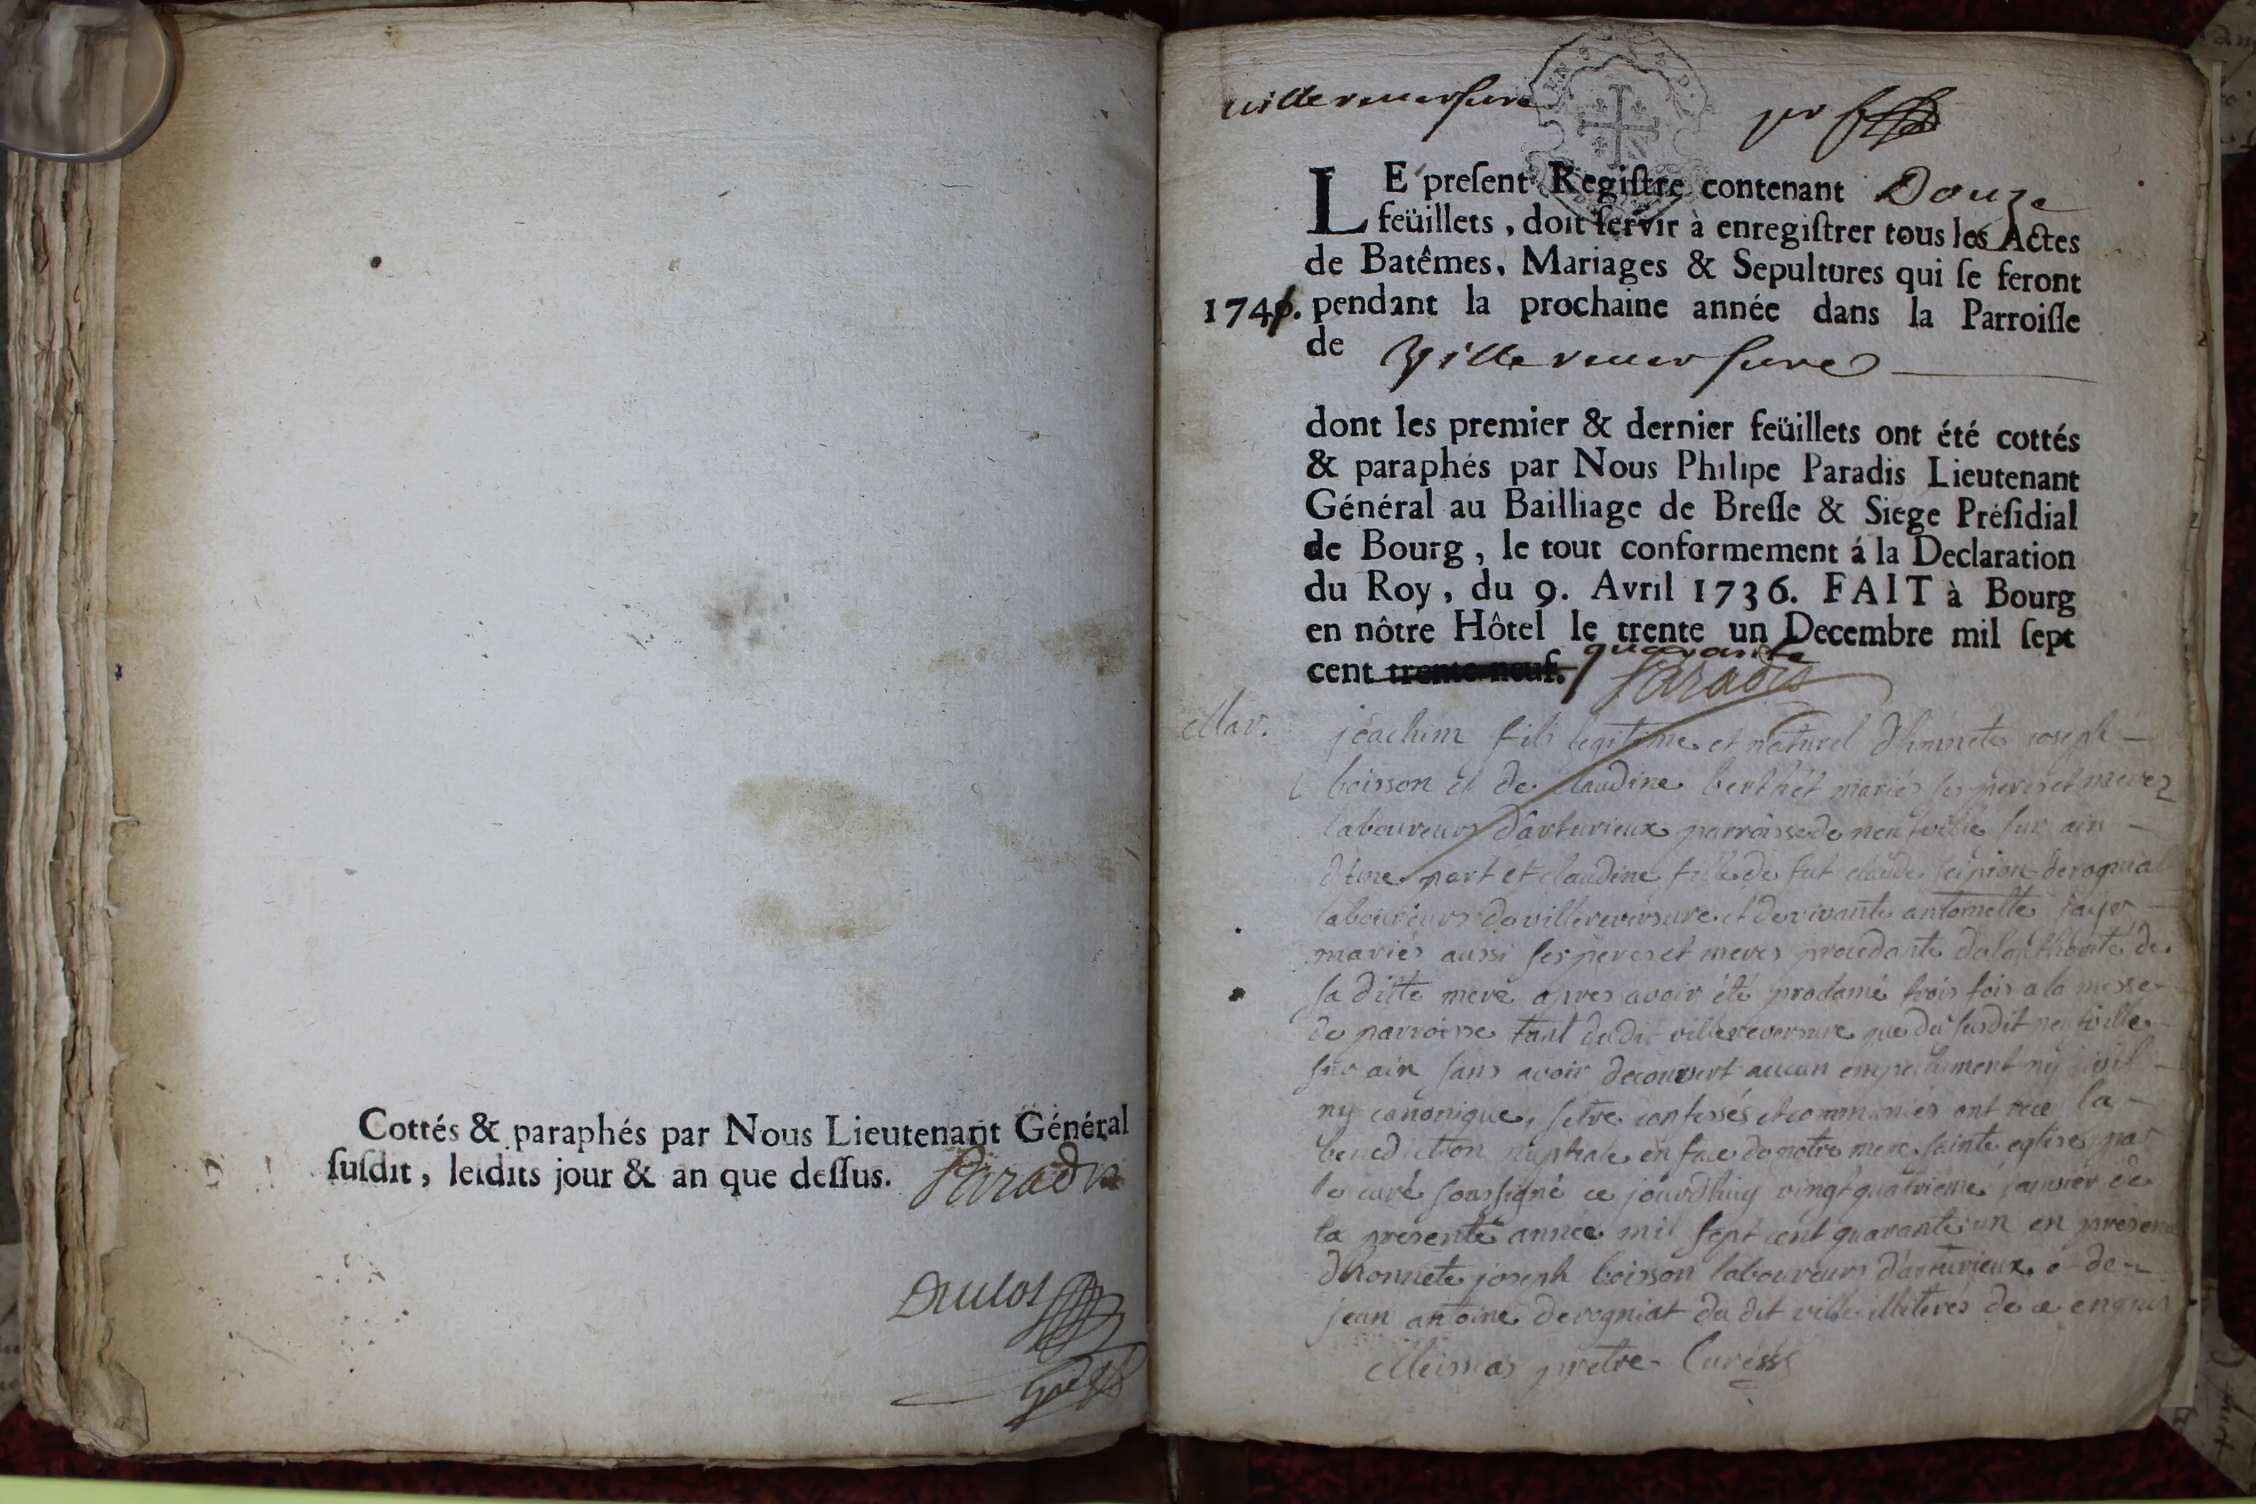 Cottés & paraphés par Nous Lieutenant Général
susdit, lesdits jour & an que dessus. Paradis
villereversure
LE present Registre contenant Douze
feüillets, doit servir à enregistrer tous les Actes
de Batêmes, Mariages & Sepultures qui se feront
174 . pendant la prochaine année dans la Parroisse
de Villereversure
dont les premier & dernier feüillets ont été cottés
& paraphés par Nous Philipe Paradis Lieutenant
Général au Bailliage de Bresse & Siege Présidial
de Bourg, le tout conformement á la Declaration
du Roy, du 9. Avril 1736. FAIT à Bourg
en nôtre Hôtel le trente un Decembre mil sept
cent trente neuf. quarante Paradis
Mar. joachim fils legitime et naturel d'honnete joseph
boisson et de claudine berthet mariés ses peres et meres
laboureurs d'arturieux parroisse de neufville sur ain
d'une part et claudine fille de fut claude scipion derogniat
laboureurs de villereversure et de vivante antoinette
mariés aussi ses peres et meres procedante de lauthorité de
sa ditte mere apres avoir été proclamé trois fois a la messe
de parroisse tant du dit villereversure que du susdit neufville
sur ain sans avoir decouvert aucun empechement ny civil
ny canonique, setre confessés et communiés ont reçu la
benediction nuptiale en face de notre mere sainte eglise par
le curé soussigné ce jourdhuy vingt quatrieme janvier de
la presente année mil sept cent quarante un en presence
d'honnete joseph boisson laboureurs d'arturieux e de
jean antoine derogniat du dit ville illiterés de ce enquis
pretre Curé